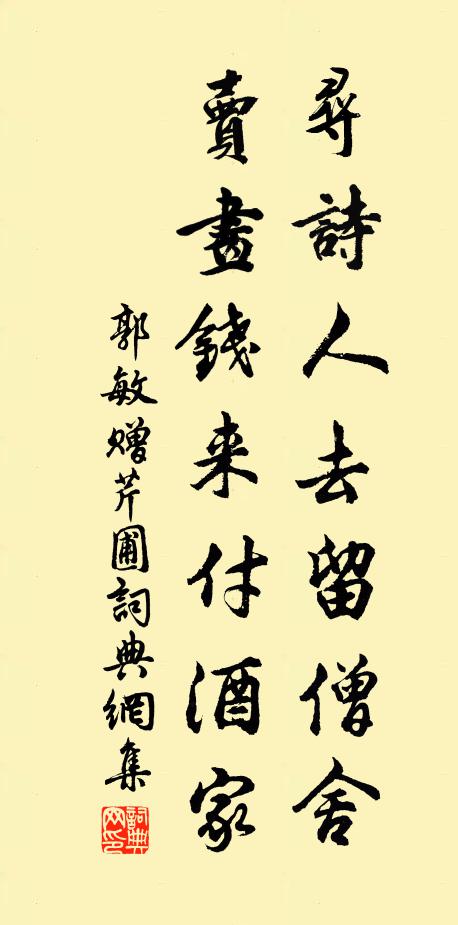 尋詩人去留僧舍
賣畫錢來付酒家
郭敏贈芹圃詞典網集
詞典
网印